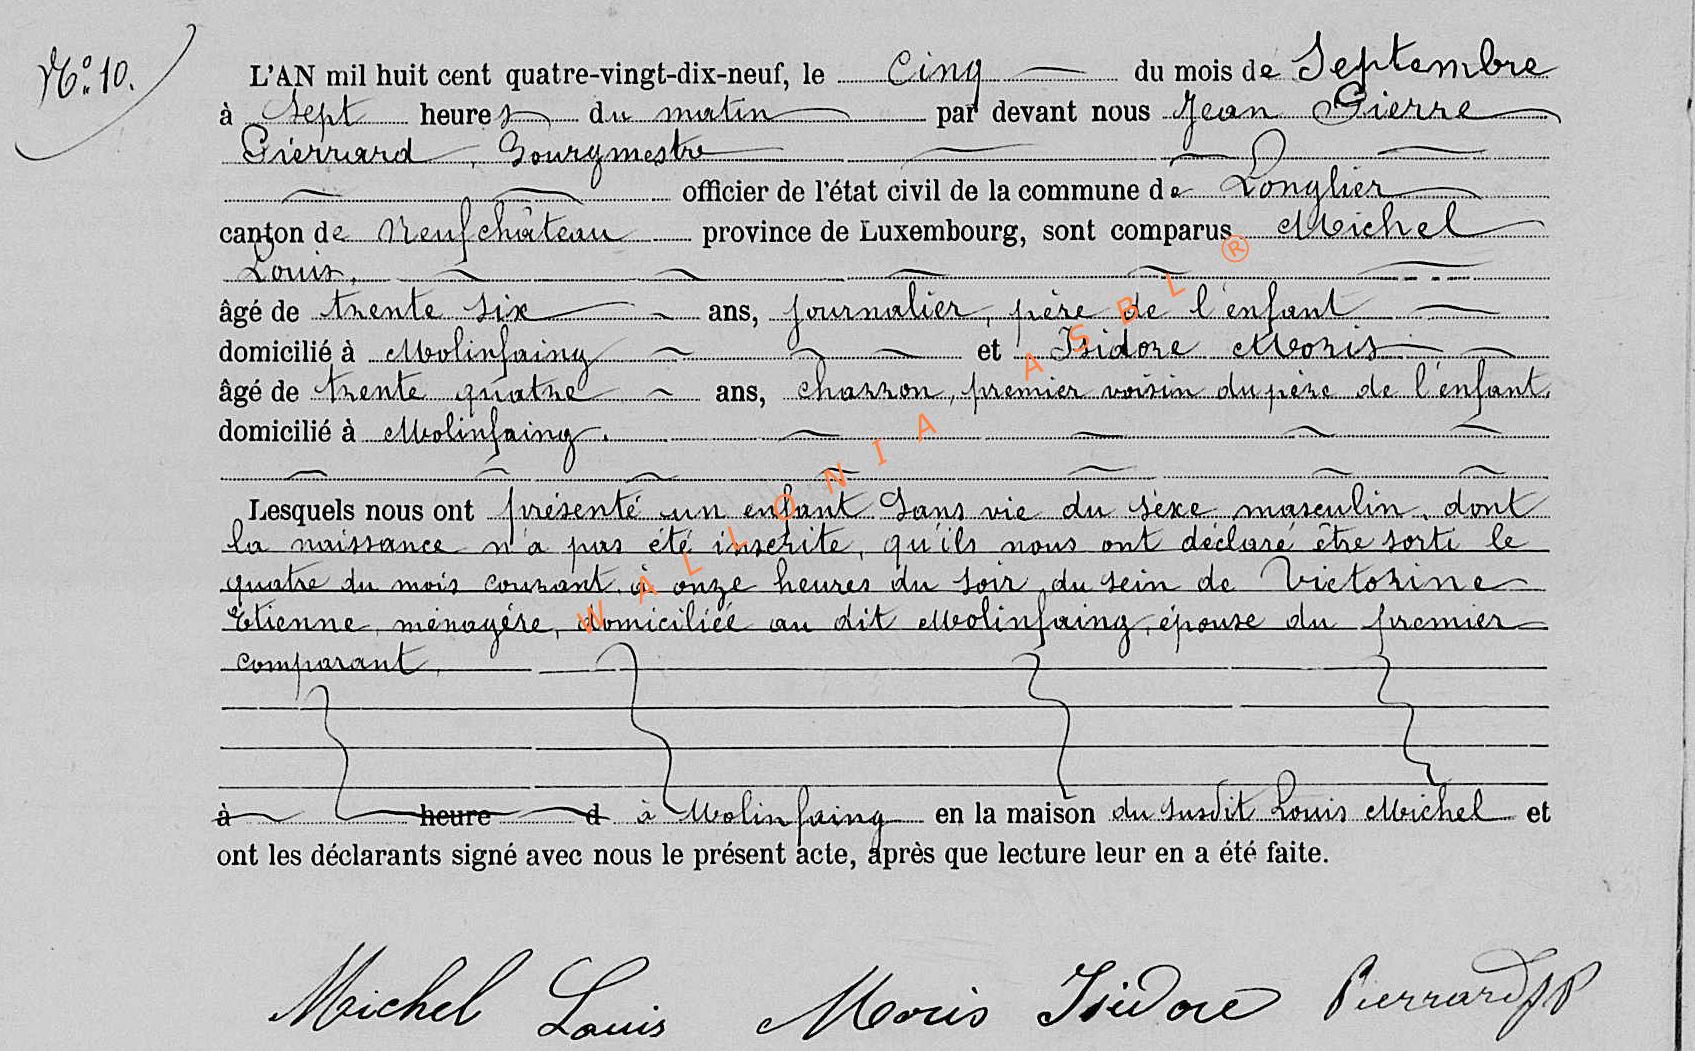 N.° 10.
L'AN mil huit cent quatre-vingt-dix-neuf, le Cinq du mois de Septembre
à Sept heures du matin par devant nous Jean Pierre
Pierrard, Bourgmestre
officier de l'état civil de la commune de Longlier
canton de Neufchâteau province de Luxembourg, sont comparus Michel
Louis,
âgé de trente six ans, journalier, père de l'enfant
domicilié à Molinfaing et Isidore Moris
âgé de trente quatre ans, charron, premier voisin du père de l'enfant,
domicilié à Molinfaing.
Lesquels nous ont présenté un enfant Sans vie du sèxe masculin, dont
la naissance n'a pas été inscrite, qu'ils nous ont déclaré être sorti le
quatre du mois courant à onze heures du soir, du sein de Victorine
Etienne, ménagère, domiciliée au dit Molinfaing, épouse du premier
comparant.
à heure d à Molinfaing en la maison du susdit Louis Michel et
ont les déclarants signé avec nous le présent acte, après que lecture leur en a été faite.
Michel Louis Moris Isidore Pierrard JP
WALLONIA ASBL ®